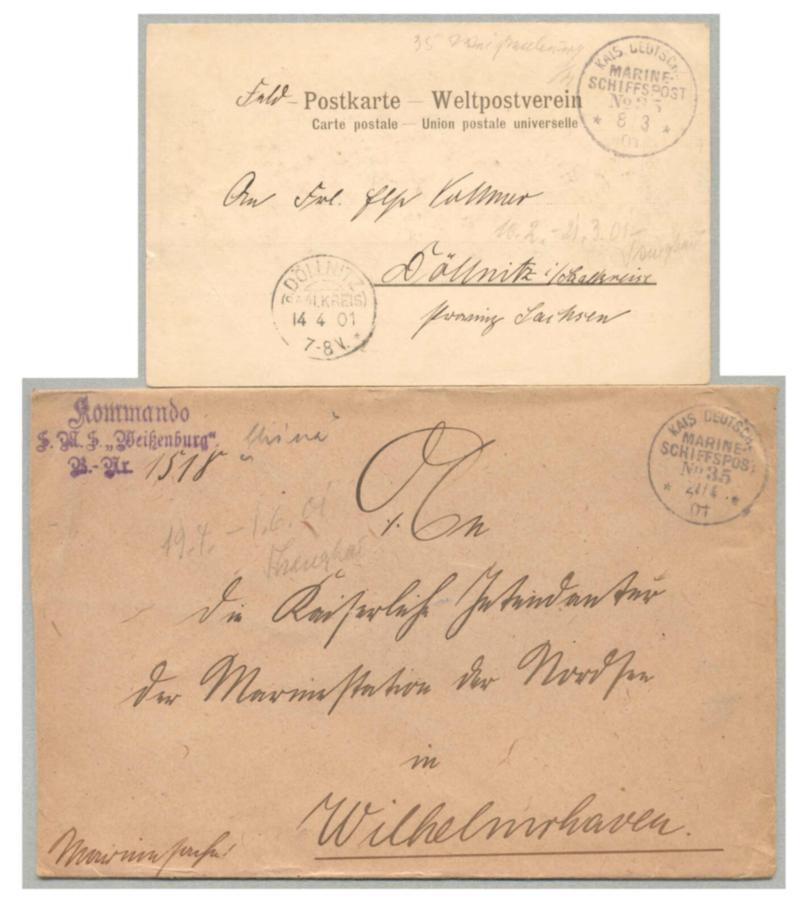 35 Weißenburg
KAIS. DEUTSCHE
MARINE-
SCHIFFSPOST
No 35
* 8/3 *
01
Feld-Postkarte — Weltpostverein
Carte postale — Union postale universelle
An Frl. Else Vollmer
10.2.-21.3.01-
Shanghai
Döllnitz i/Saalkreise
Provinz Sachsen
DÖLLNITZ
(SAALKREIS)
14 4 01
7-8 V. *
Kommando
S. M. S. „Weißenburg“.
B.-Nr. 1518
„China“
KAIS. DEUTSCHE
MARINE-
SCHIFFSPOST
No 35
* 21/4 *
01
19.4. - 1.6. 01
Shanghai
An
die Kaiserliche Intendantur
der Marinestation der Nordsee
in
Wilhelmshaven.
Marinesache!